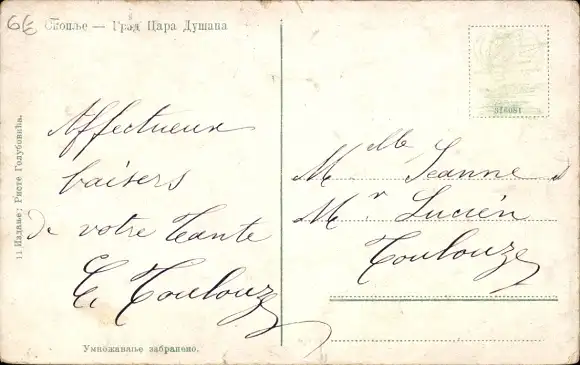 6E
Скопље — Град Цара Душана
516081
Affectueux
baisers
de votre Tante
E. Toulouze
Mlle Jeanne
Mr Lucien
Toulouze
11 Издање: Ристе Голубовића.
Умножавање забрањено.